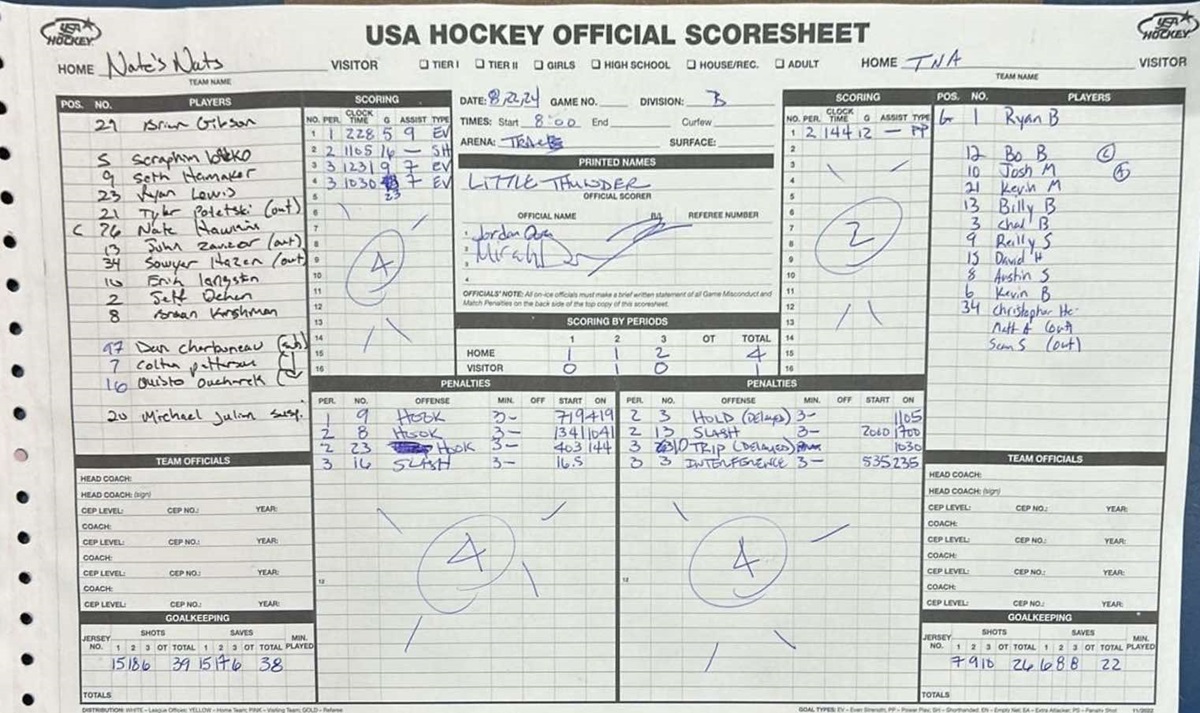 USA HOCKEY
USA HOCKEY OFFICIAL SCORESHEET
USA HOCKEY
HOME Nate's Nats VISITOR
TEAM NAME
TIER I TIER II GIRLS HIGH SCHOOL HOUSE/REC. ADULT
HOME TNA VISITOR
TEAM NAME
POS. NO. PLAYERS
29 Brian Gibson
5 Seraphim
9 Seth Hamaker
23 Ryan Lewis
21 Tyler Poletski (out)
C 26 Nate Hawkins
13 John Zanzor (out)
34 Sawyer Hazen (out)
10 Erik Langston
2 Jeff Ochen
8 Brian Kirshman
97 Dan Charbuneau (sub)
7 Colton
16 Quisto
20 Michael Julian susp.
SCORING
NO. PER. CLOCK TIME G ASSIST TYPE
1 1 228 5 9 EV
2 2 1105 16 — SH
3 3 1231 9 7 EV
4 3 1030 23 7 EV
5
6
7
8
9
10
11
12
13
14
15
16
4
DATE: 8/22/24 GAME NO. DIVISION: B
TIMES: Start 8:00 End Curfew
ARENA: SURFACE:
PRINTED NAMES
LITTLE THUNDER
OFFICIAL SCORER
OFFICIAL NAME REFEREE NUMBER
1 Jordan
2
3
4
OFFICIALS' NOTE: All on-ice officials must make a brief written statement of all Game Misconduct and
Match Penalties on the back side of the top copy of this scoresheet.
SCORING BY PERIODS
1 2 3 OT TOTAL
HOME 1 1 2 4
VISITOR 0 1 0 1
SCORING
NO. PER. CLOCK TIME G ASSIST TYPE
1 2 144 12 — PP
2
3
4
5
6
7
8
9
10
11
12
13
14
15
16
2
POS. NO. PLAYERS
G 1 Ryan B
12 Bo B C
10 Josh M A
21 Kevin M
13 Billy B
3 Chad B
9 Reilly S
15 David H
8 Austin S
6 Kevin B
34 Christopher Hc
Matt A (out)
Sean S (out)
PENALTIES
PER. NO. OFFENSE MIN. OFF START ON
1 9 HOOK 3- 719 419
2 8 HOOK 3- 1341 1041
2 23 HOOK 3- 403 144
3 16 SLASH 3- 16.5
12
4
PENALTIES
PER. NO. OFFENSE MIN. OFF START ON
2 3 HOLD (DELAYED) 3- 1105
2 13 SLASH 3- 2000 1700
3 10 TRIP (DELAYED) 1030
3 3 INTERFERENCE 3- 535 235
12
4
TEAM OFFICIALS
HEAD COACH:
HEAD COACH: (sign)
CEP LEVEL: CEP NO.: YEAR:
COACH:
CEP LEVEL: CEP NO.: YEAR:
COACH:
CEP LEVEL: CEP NO.: YEAR:
COACH:
CEP LEVEL: CEP NO.: YEAR:
GOALKEEPING
JERSEY NO. SHOTS SAVES MIN. PLAYED
1 2 3 OT TOTAL 1 2 3 OT TOTAL
15 18 6 39 15 17 6 38
TOTALS
TEAM OFFICIALS
HEAD COACH:
HEAD COACH: (sign)
CEP LEVEL: CEP NO.: YEAR:
COACH:
CEP LEVEL: CEP NO.: YEAR:
COACH:
CEP LEVEL: CEP NO.: YEAR:
COACH:
CEP LEVEL: CEP NO.: YEAR:
GOALKEEPING
JERSEY NO. SHOTS SAVES MIN. PLAYED
1 2 3 OT TOTAL 1 2 3 OT TOTAL
7 9 10 26 6 8 8 22
TOTALS
DISTRIBUTION: WHITE – League Officer, YELLOW – Home Team, PINK – Visiting Team, GOLD – Referee
GOAL TYPES: EV – Even Strength, PP – Power Play, SH – Shorthanded, EN – Empty Net, EA – Extra Attacker, PS – Penalty Shot 11/2022